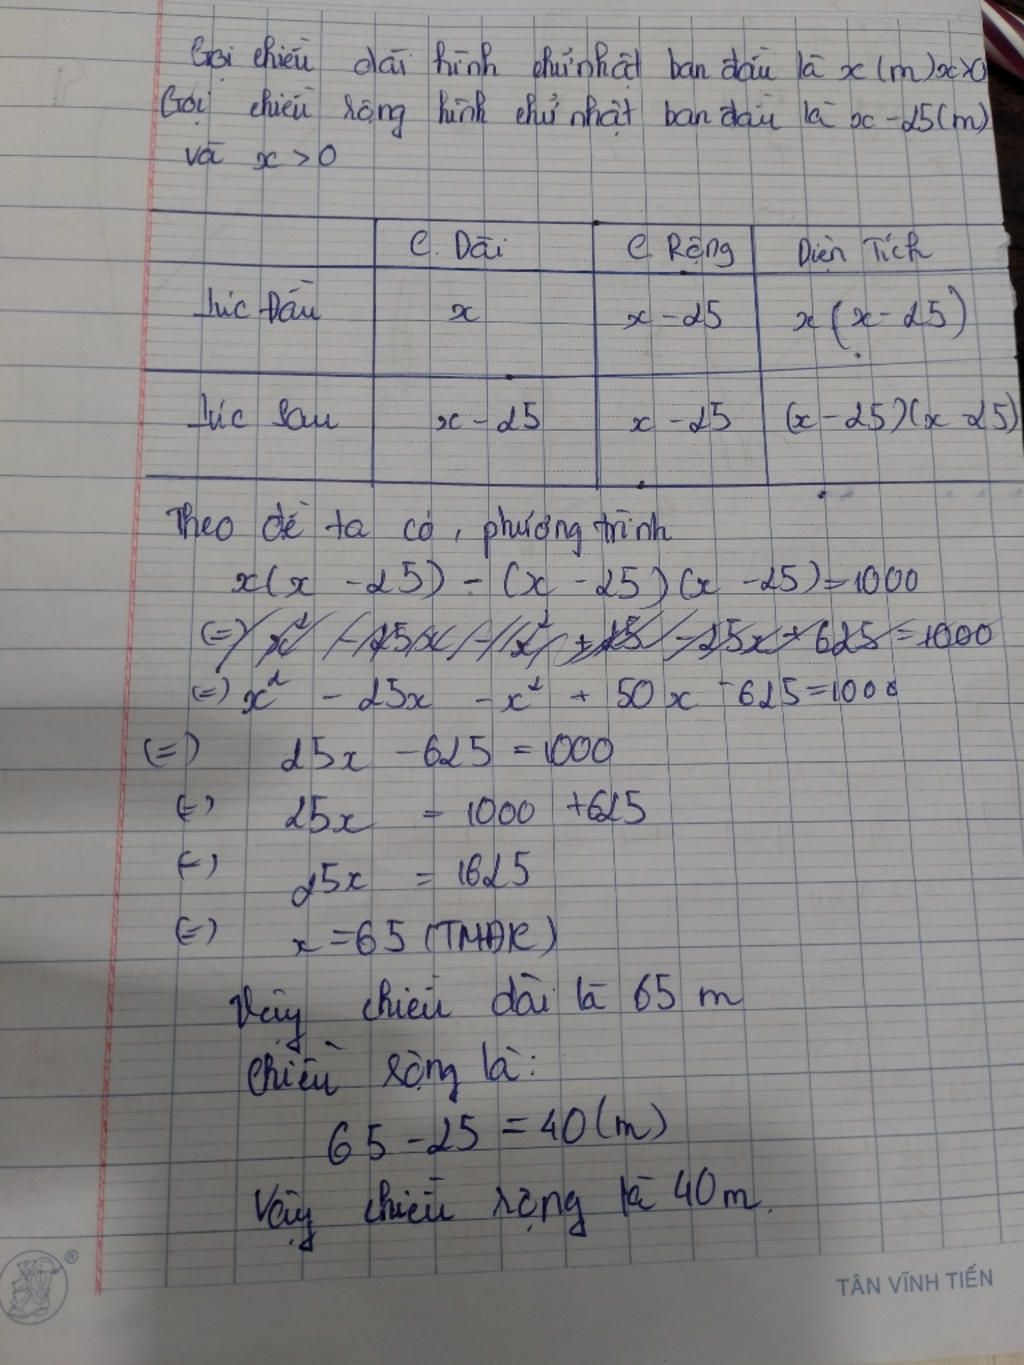 Gọi chiều dài hình chữ nhật ban đầu là x (m) x>0
Gọi chiều rộng hình chữ nhật ban đầu là x-25(m)
và x > 0
C. Dài C. Rộng Diện Tích
Lúc Đầu x x-25 x(x-25)
Lúc sau x-25 x-25 (x-25)(x-25)
Theo đề ta có, phương trình
x(x-25) - (x-25)(x-25)=1000
(=) x² - 25x - x² + 25 - 25x + 625 = 1000
(=) x² - 25x - x² + 50x - 625 = 1000
(=) 25x - 625 = 1000
(=) 25x = 1000 + 625
(=) 25x = 1625
(=) x = 65 (TMĐK)
Vậy chiều dài là 65 m
Chiều rộng là:
65 - 25 = 40 (m)
Vậy chiều rộng là 40m.
®
TÂN VĨNH TIẾN